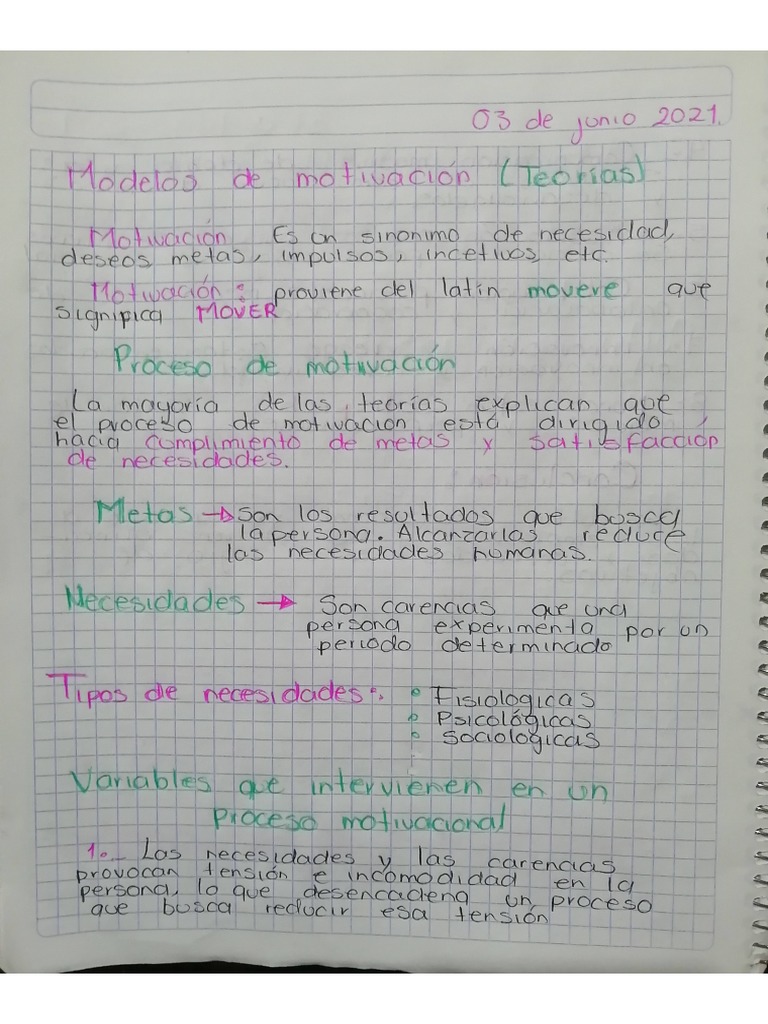 03 de junio 2021.
Modelos de motivación (Teorías)
Motivación Es un sinonimo de necesidad,
deseos metas, impulsos, incetivos, etc.
Motivación: proviene del latín movere que
significa MOVER
Proceso de motivación
La mayoría de las teorías explican que
el proceso de motivación está dirigido
hacia cumplimiento de metas y satisfacción
de necesidades.
Metas → Son los resultados que busca
la persona. Alcanzarlas reduce
las necesidades humanas.
Necesidades → Son carencias que una
persona experimenta por un
periodo determinado
Tipos de necesidades: • Fisiologicas
• Psicológicas
• Sociologicas
Variables que intervienen en un
proceso motivacional
1.- Las necesidades y las carencias
provocan tensión e incomodidad en la
persona, lo que desencadena un proceso
que busca reducir esa tensión